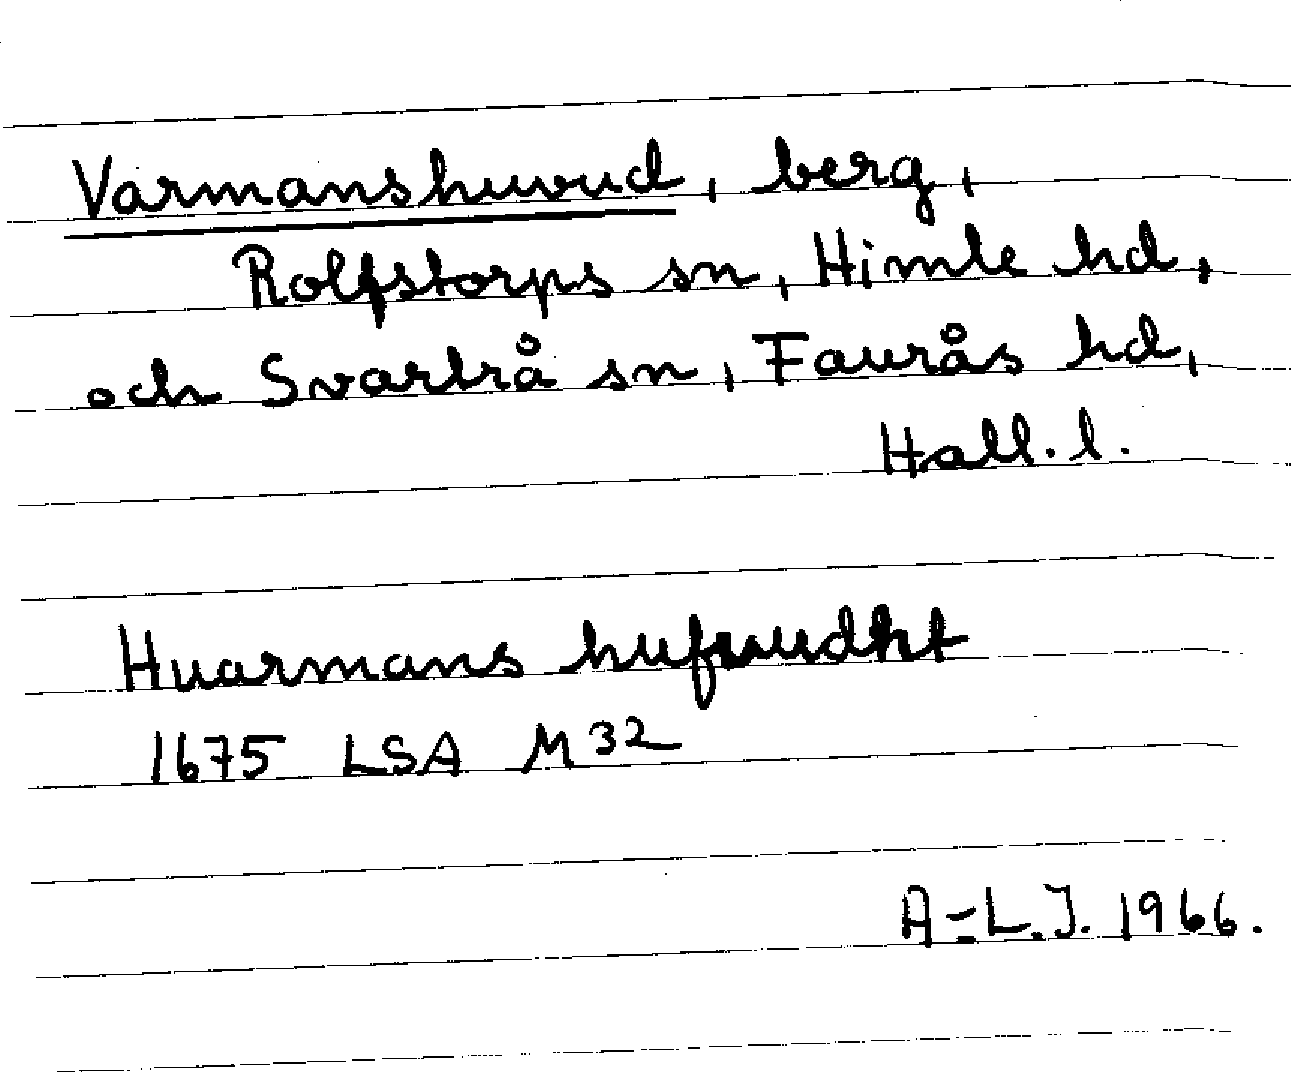 Varmanshuvud, berg,
Rolfstorps sn, Himle hd,
och Svartrå sn, Faurås hd,
Hall. l.
Huarmans
1675 LSA M 32
A-L.J. 1966.